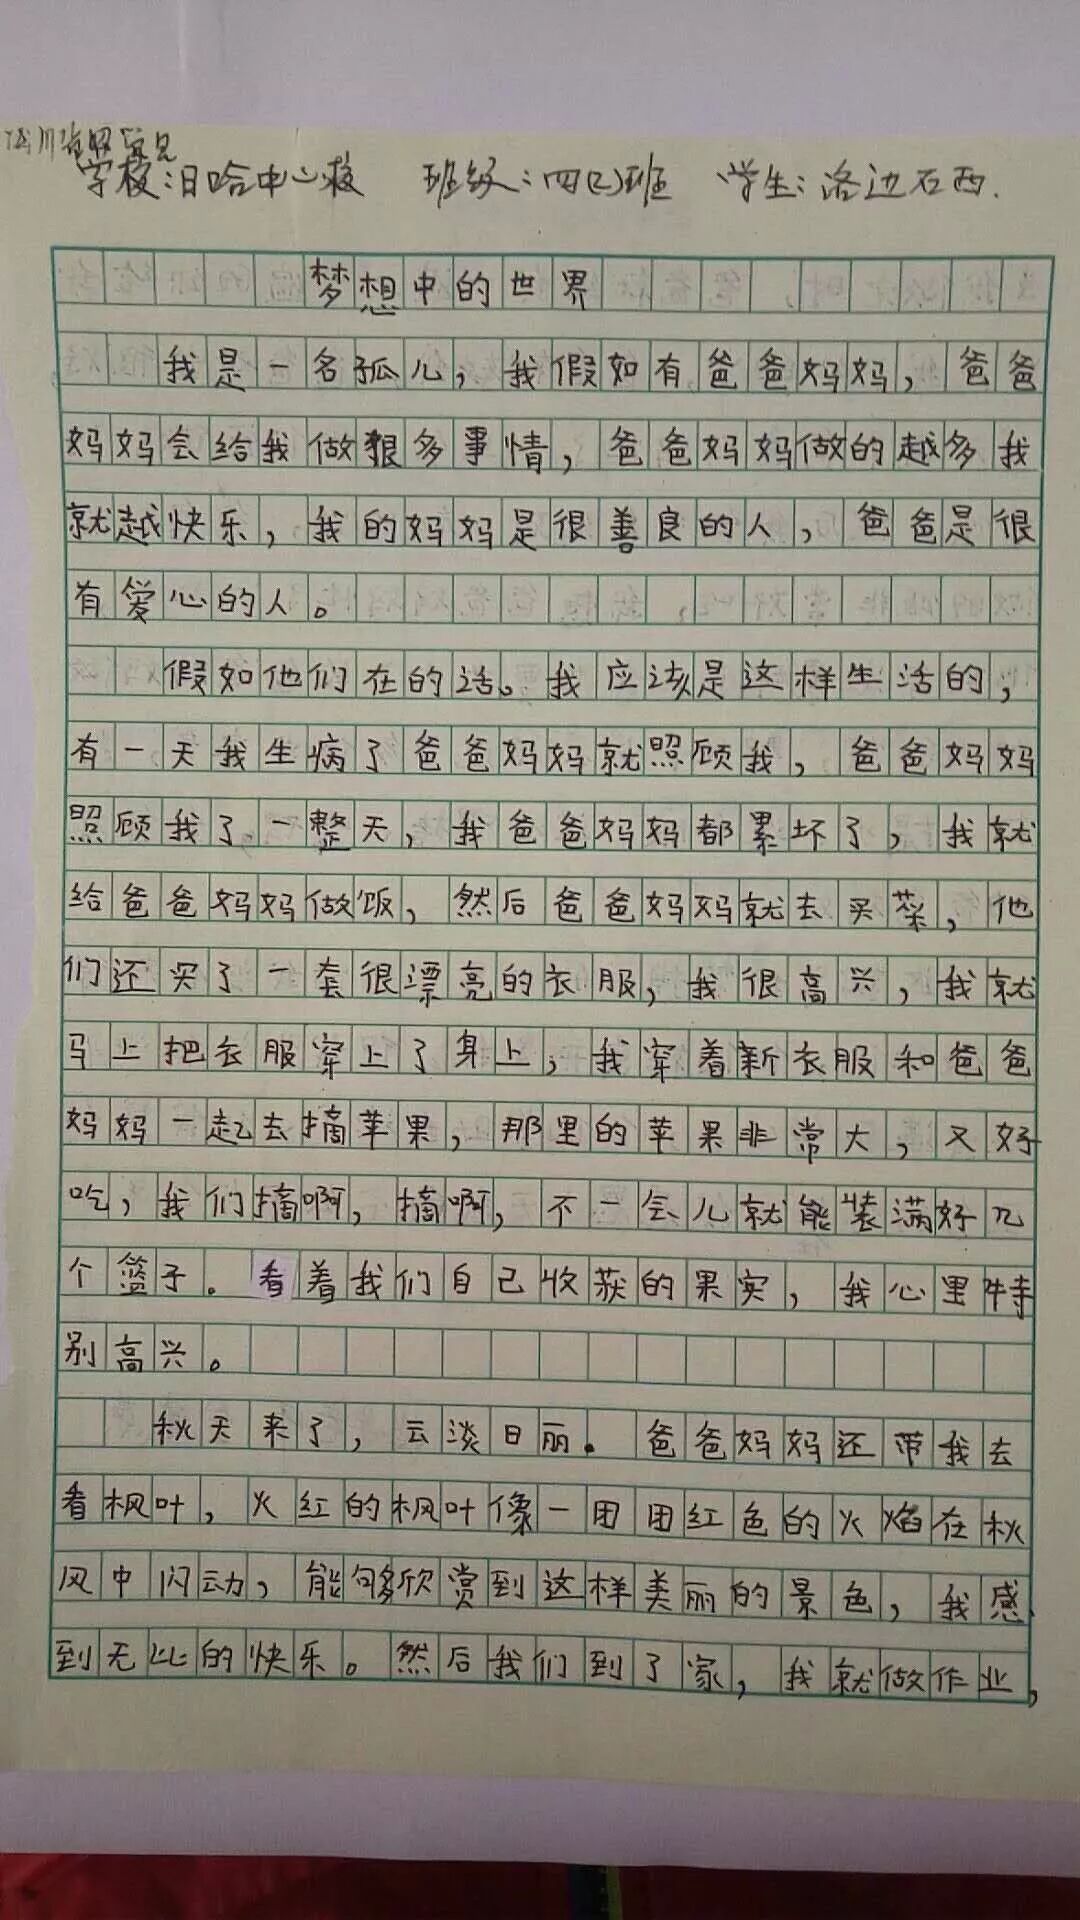 学校:日哈中心校 班级:四(2)班 学生:洛边石西.
梦想中的世界
我是一名孤儿，我假如有爸爸妈妈，爸爸
妈妈会给我做狠多事情，爸爸妈妈做的越多我
就越快乐，我的妈妈是很善良的人，爸爸是很
有爱心的人。
假如他们在的话。我应该是这样生活的，
有一天我生病了爸爸妈妈就照顾我，爸爸妈妈
照顾我了一整天，我爸爸妈妈都累坏了，我就
给爸爸妈妈做饭，然后爸爸妈妈就去买菜，他
们还买了一套很漂亮的衣服，我很高兴，我就
马上把衣服穿上了身上，我穿着新衣服和爸爸
妈妈一起去摘苹果，那里的苹果非常大，又好
吃，我们摘啊，摘啊，不一会儿就能装满好几
个篮子。看着我们自己收获的果实，我心里特
别高兴。
秋天来了，云淡日丽。爸爸妈妈还带我去
看枫叶，火红的枫叶像一团团红色的火焰在秋
风中闪动，能够欣赏到这样美丽的景色，我感
到无比的快乐。然后我们到了家，我就做作业，